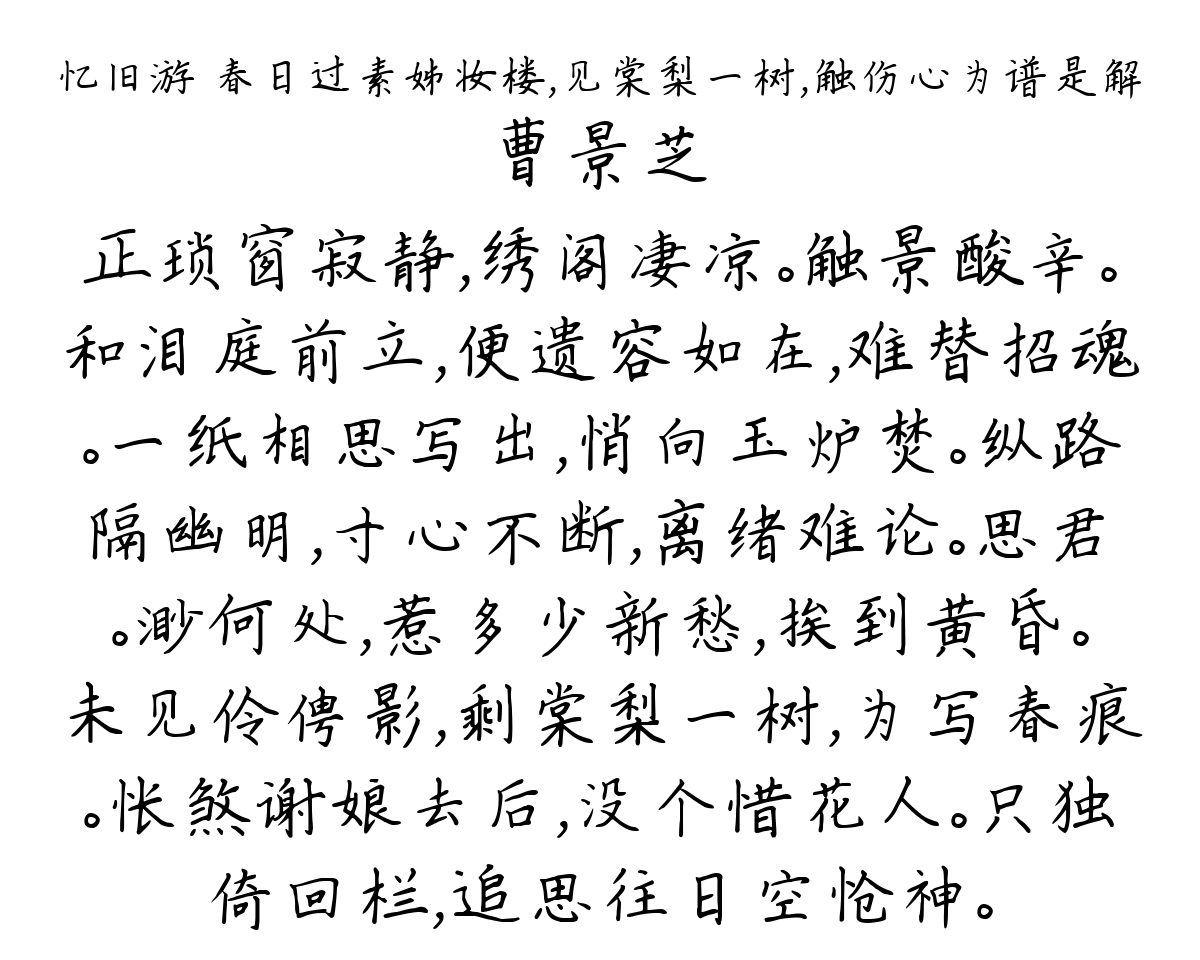 忆旧游 春日过素姊妆楼,见棠梨一树,触伤心为谱是解
曹景芝
正琐窗寂静,绣阁凄凉。触景酸辛。
和泪庭前立,便遗容如在,难替招魂
。一纸相思写出,悄向玉炉焚。纵路
隔幽明,寸心不断,离绪难论。思君
。渺何处,惹多少新愁,挨到黄昏。
未见伶俜影,剩棠梨一树,为写春痕
。怅煞谢娘去后,没个惜花人。只独
倚回栏,追思往日空怆神。